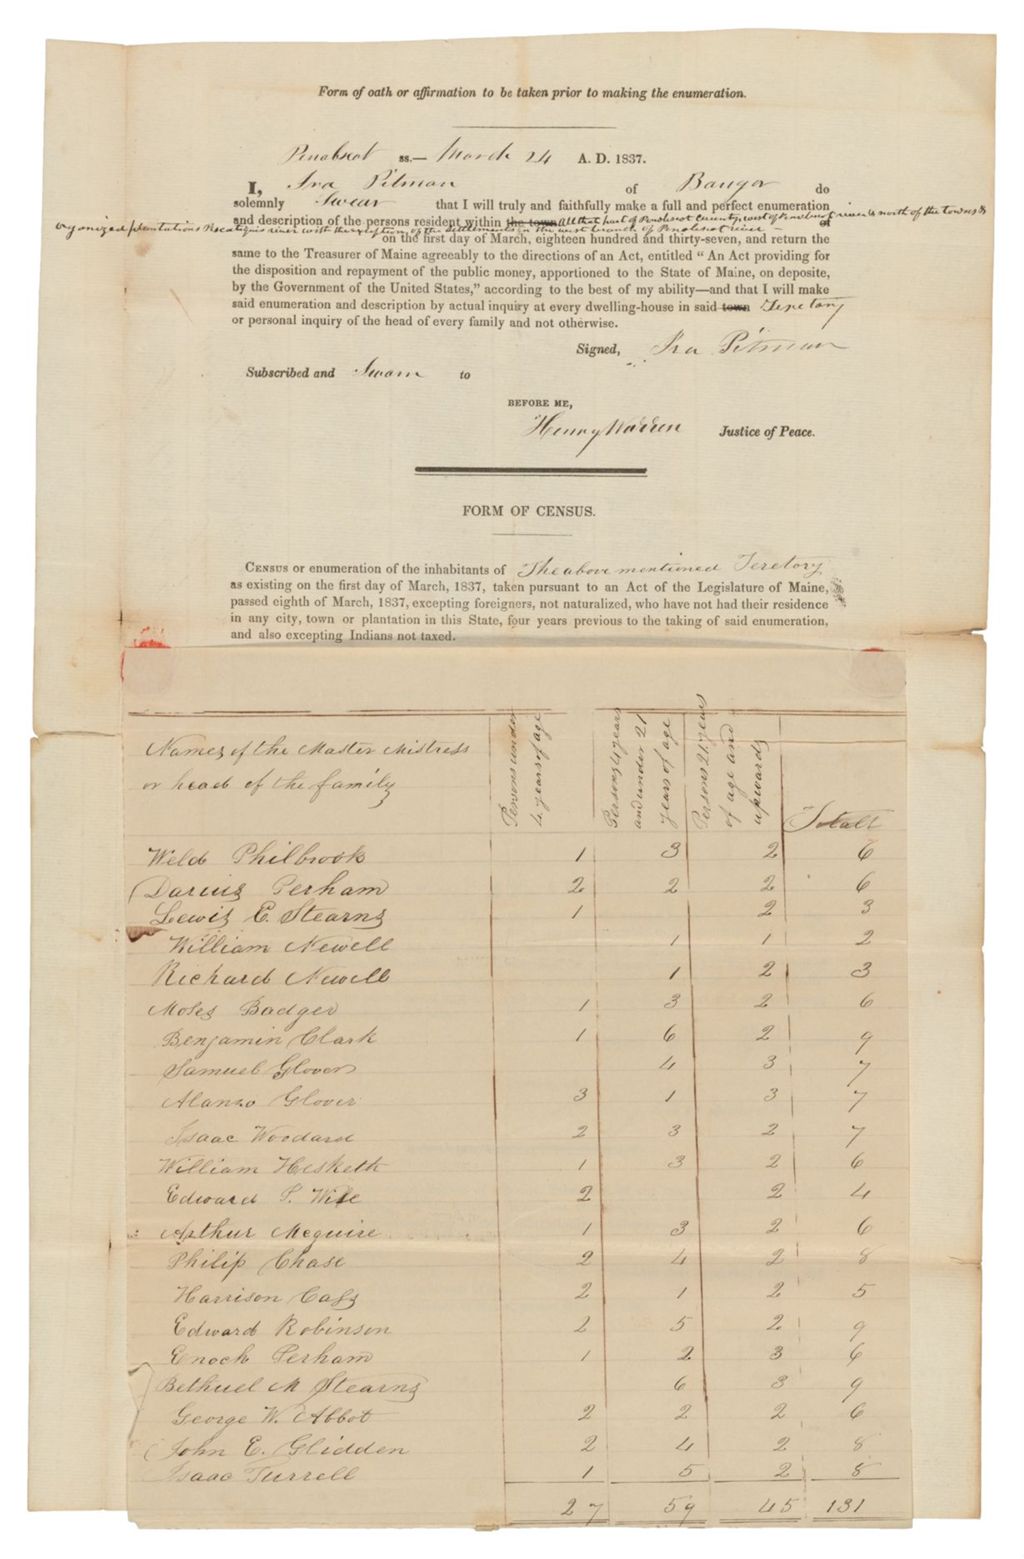 Form of oath or affirmation to be taken prior to making the enumeration.
Penobscot ss.— March 24 A. D. 1837.
I, Ira Pitman of Bangor do
solemnly Swear that I will truly and faithfully make a full and perfect enumeration
and description of the persons resident within the town All that part of Penobscot County, west of Penobscot river & north of the towns &
organized plantations Piscataquis river with the exception of the settlements on the west branch of Penobscot river – of
on the first day of March, eighteen hundred and thirty-seven, and return the
same to the Treasurer of Maine agreeably to the directions of an Act, entitled “ An Act providing for
the disposition and repayment of the public money, apportioned to the State of Maine, on deposite,
by the Government of the United States,” according to the best of my ability—and that I will make
said enumeration and description by actual inquiry at every dwelling-house in said town Teretory
or personal inquiry of the head of every family and not otherwise.
Signed, Ira Pitman
Subscribed and Sworn to
BEFORE ME,
Henry Warren Justice of Peace.
FORM OF CENSUS.
CENSUS or enumeration of the inhabitants of The above mentioned Teretory
as existing on the first day of March, 1837, taken pursuant to an Act of the Legislature of Maine,
passed eighth of March, 1837, excepting foreigners, not naturalized, who have not had their residence
in any city, town or plantation in this State, four years previous to the taking of said enumeration,
and also excepting Indians not taxed.
Names of the Master Mistress
or head of the family
Persons under
4 years of age
Persons 4 years
and under 21
years of age
Persons 21 years
of age and
upwards
Totall
Weld Philbrook 1 3 2 6
Darius Perham 2 2 2 6
Lewis E. Stearns 1 2 3
William Newell 1 1 2
Richard Newell 1 2 3
Moses Badger 1 3 2 6
Benjamin Clark 1 6 2 9
Samuel Glover 4 3 7
Alanzo Glover 3 1 3 7
Isaac Woodard 2 3 2 7
William Hesketh 1 3 2 6
Edward S. Wise 2 2 4
Arthur Mcguire 1 3 2 6
Philip Chase 2 4 2 8
Harrison Cass 2 1 2 5
Edward Robinson 2 5 2 9
Enoch Perham 1 2 3 6
Bethuel M Stearns 6 3 9
George W. Abbot 2 2 2 6
John E. Glidden 2 4 2 8
Isaac Turrell 1 5 2 8
27 59 45 131